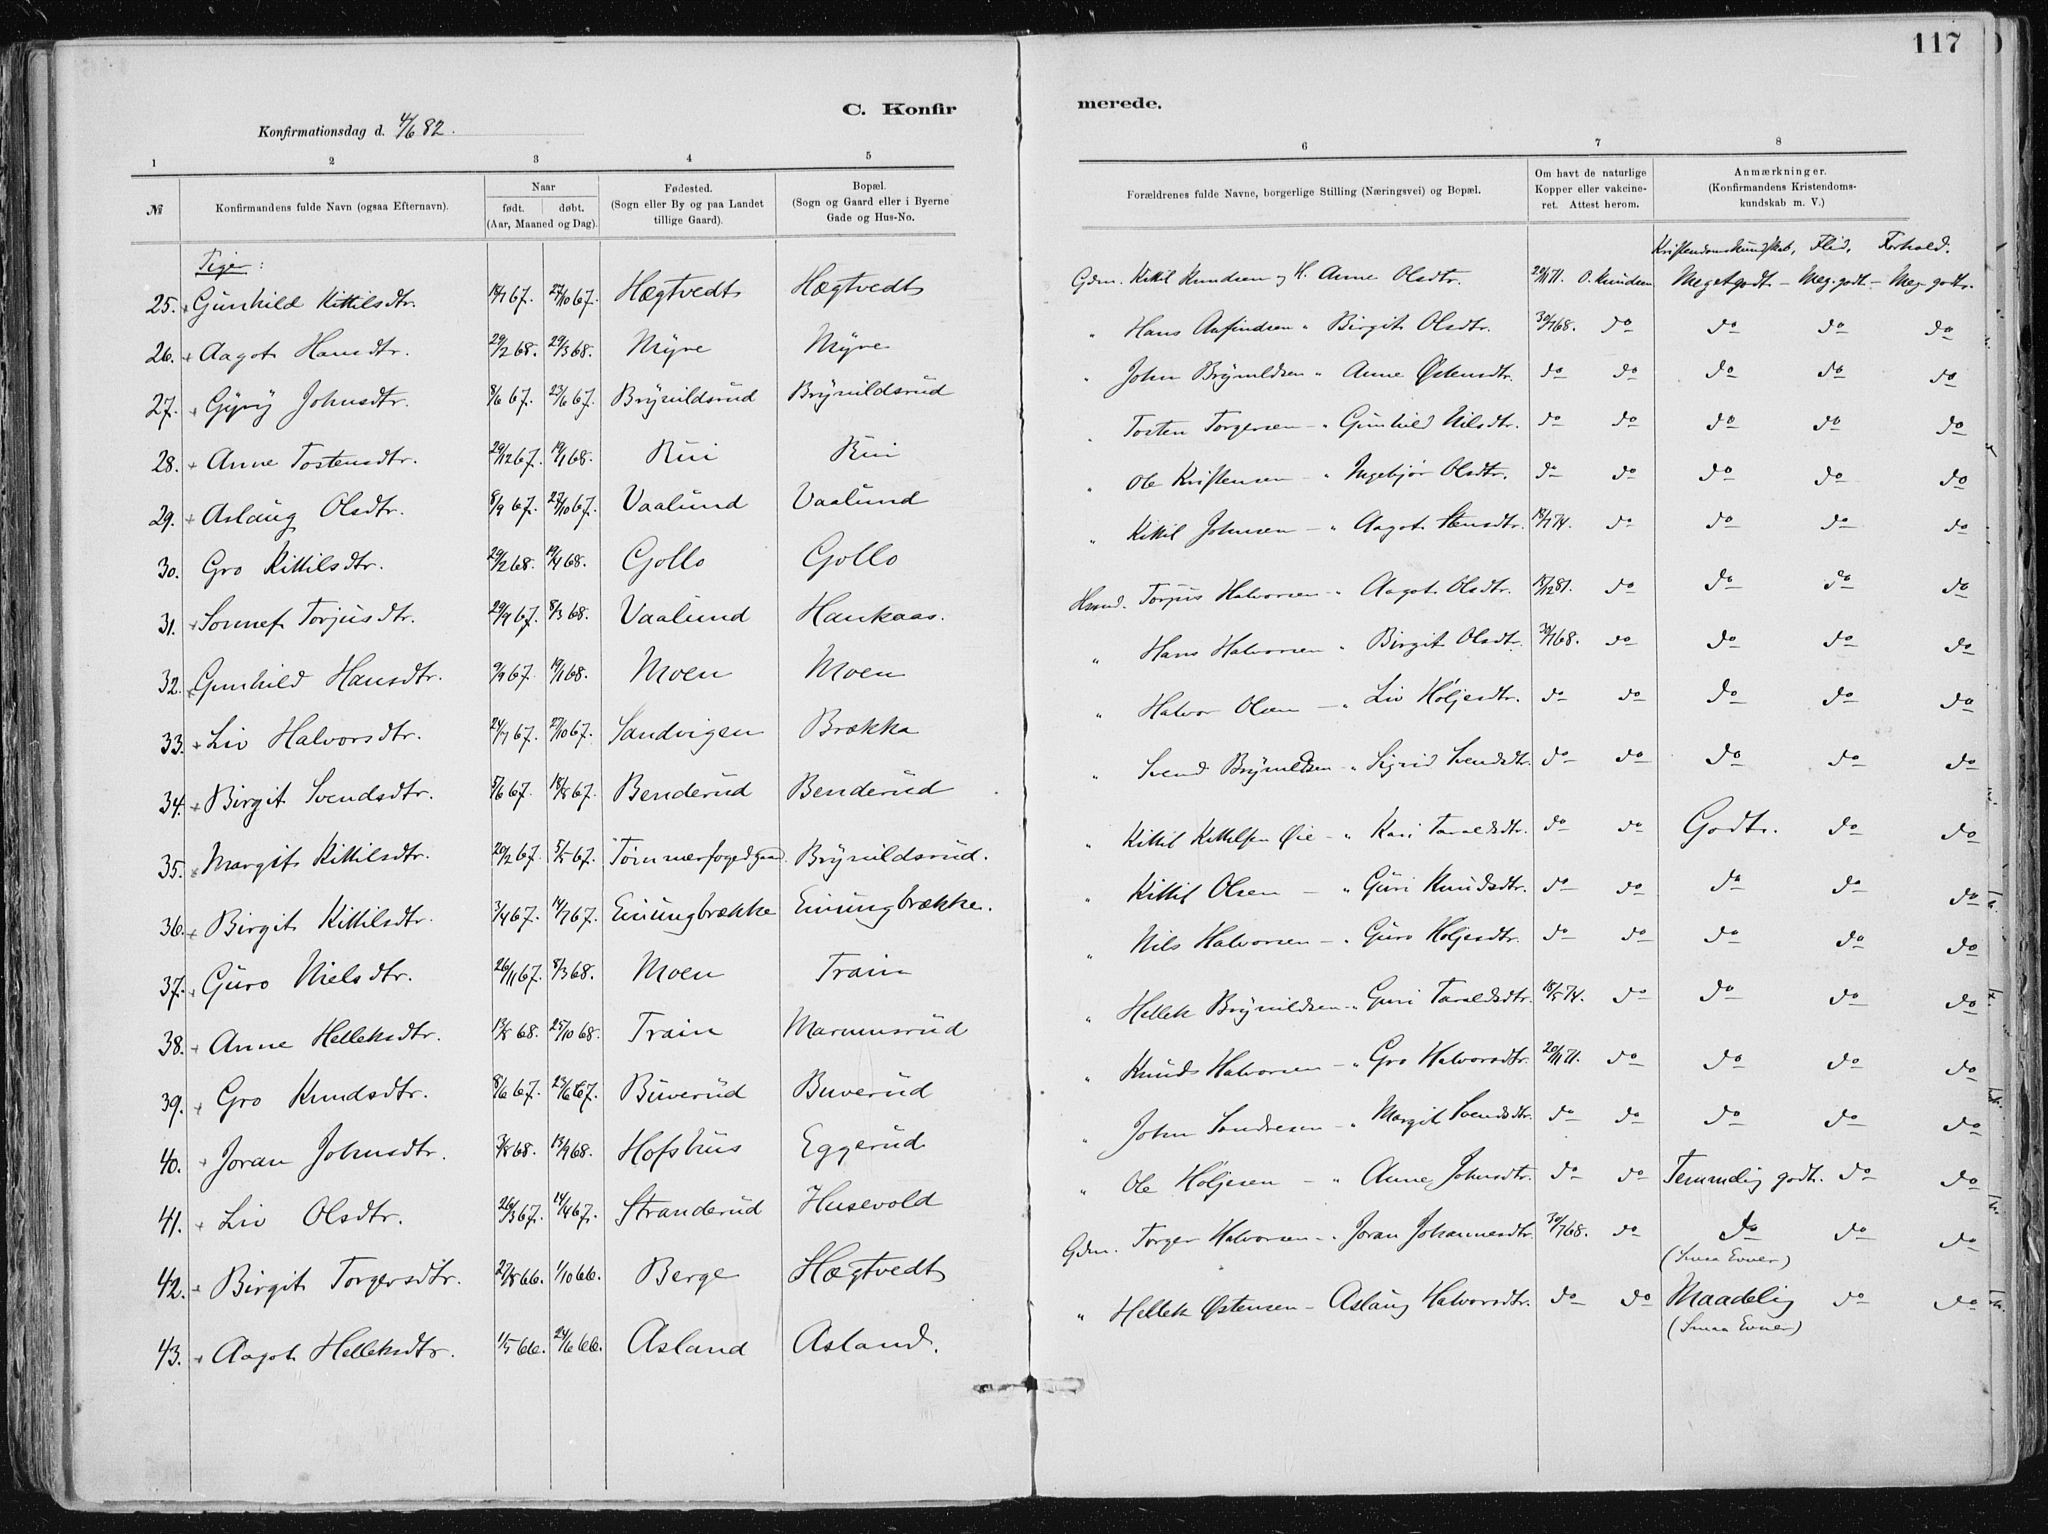 117
C. Konfirmerede.
Konfirmationsdag d. 4/6 82.
1 2 3 4 5 6 7 8
№ Konfirmandens fulde Navn (ogsaa Efternavn). Naar født. døbt. (Aar, Maaned og Dag). Fødested. (Sogn eller By og paa Landet tillige Gaard). Bopæl. (Sogn og Gaard eller i Byerne Gade og Hus-No. Forældrenes fulde Navne, borgerlige Stilling (Næringsvei) og Bopæl. Om havt de naturlige Kopper eller vakcineret. Attest herom. Anmærkninger. (Konfirmandens Kristendomskundskab m. V.)
Piger: Kristendomskundskab, Flid, Forhold.
25. Gunhild Kittilsdtr. 14/7 67. 27/10 67. Hægtvedt Hægtvedt Gdm. Kittil Knudsen og H. Anne Olsdtr. 20/11 71. O. Knudsen Meget godt - Meg. godt - Meg. godt.
26. Aagot Hansdtr. 29/2 68. 29/3 68. Myre Myre " Hans Anfindsen " Birgit Olsdtr. 30/7 68. do do do do
27. Gyry Johnsdtr. 8/6 67. 23/6 67. Brynildsrud Brynildsrud " John Brynildsen " Anne Østensdtr. do do do do do
28. Anne Tostensdtr. 29/12 67. 19/1 68. Rui Rui " Tosten Torgersen - " Gunhild Nilsdtr. do do do do do
29. Aslaug Olsdtr. 8/9 67. 27/10 67. Vaalund Vaalund " Ole Kristensen - " Ingebjør Olsdtr. do do do do do
30. Gro Kittilsdtr. 29/2 68. 19/4 68. Gollo Gollo " Kittil Johnsen - " Aagot Stensdtr. 18/7 74. do do do do
31. Sonnef Torjusdtr. 29/9 67. 8/3 68. Vaalund Haukaas. Hsmd. Torjus Halvorsen " Aagot Olsdtr. 15/12 81. do do do do
32. Gunhild Hansdtr. 9/9 67. 19/1 68. Moen Moen " Hans Halvorsen " Birgit Olsdtr. 30/7 68. do do do do
33. Liv Halvorsdtr. 24/7 67. 27/10 67. Sandvigen Brække " Halvor Olsen - " Liv Høljesdtr. do do do do do
34. Birgit Svendsdtr. 5/6 67. 18/8 67. Benderud Benderud " Svend Brynildsen - " Sigrid Svendsdtr. do do do do do
35. Margit Kittilsdtr. 20/2 67. 5/5 67. Tømmerfogedgaard Brynildsrud. " Kittil Kittilsen Øie - " Kari Taraldsdtr. do do Godt. do do
36. Birgit Kittilsdtr. 3/4 67. 14/7 67. Einungbrække Einungbrække. " Kittil Olsen - " Guri Knudsdtr. do do do do do
37. Guro Nielsdtr. 26/11 67. 8/3 68. Moen Traim " Nils Halvorsen - " Guro Høljesdtr. do do do do do
38. Anne Helleksdtr. 13/8 68. 25/10 68. Traim Marumsrud " Hellek Brynildsen - " Guri Taraldsdtr. 18/5 74. do do do do
39. Gro Knudsdtr. 8/6 67. 23/6 67. Buverud Buverud " Knud Halvorsen - " Gro Halvorsdtr. 20/11 71. do do do do
40. Joran Johnsdtr. 3/8 68. 13/9 68. Hofshus Eggerud " John Sondresen - " Margit Svendsdtr. do do do do do
41. Liv Olsdtr. 26/3 67. 14/4 67. Stranderud Husevold " Ole Høljesen - " Anne Johnsdtr. do do Temmelig godt. do do
42. Birgit Torgersdtr. 27/8 66. 1/10 66. Berge Hægtvedt Gdm. Torger Halvorsen - " Joran Johannesdtr. 30/7 68. do do do do
(Smaa Evner)
43. Aagot Helleksdtr. 1/5 66. 24/6 66. Asland Asland. " Hellek Østensen - Aslaug Halvorsdtr. do do Maadelig do do
(Smaa Evner)